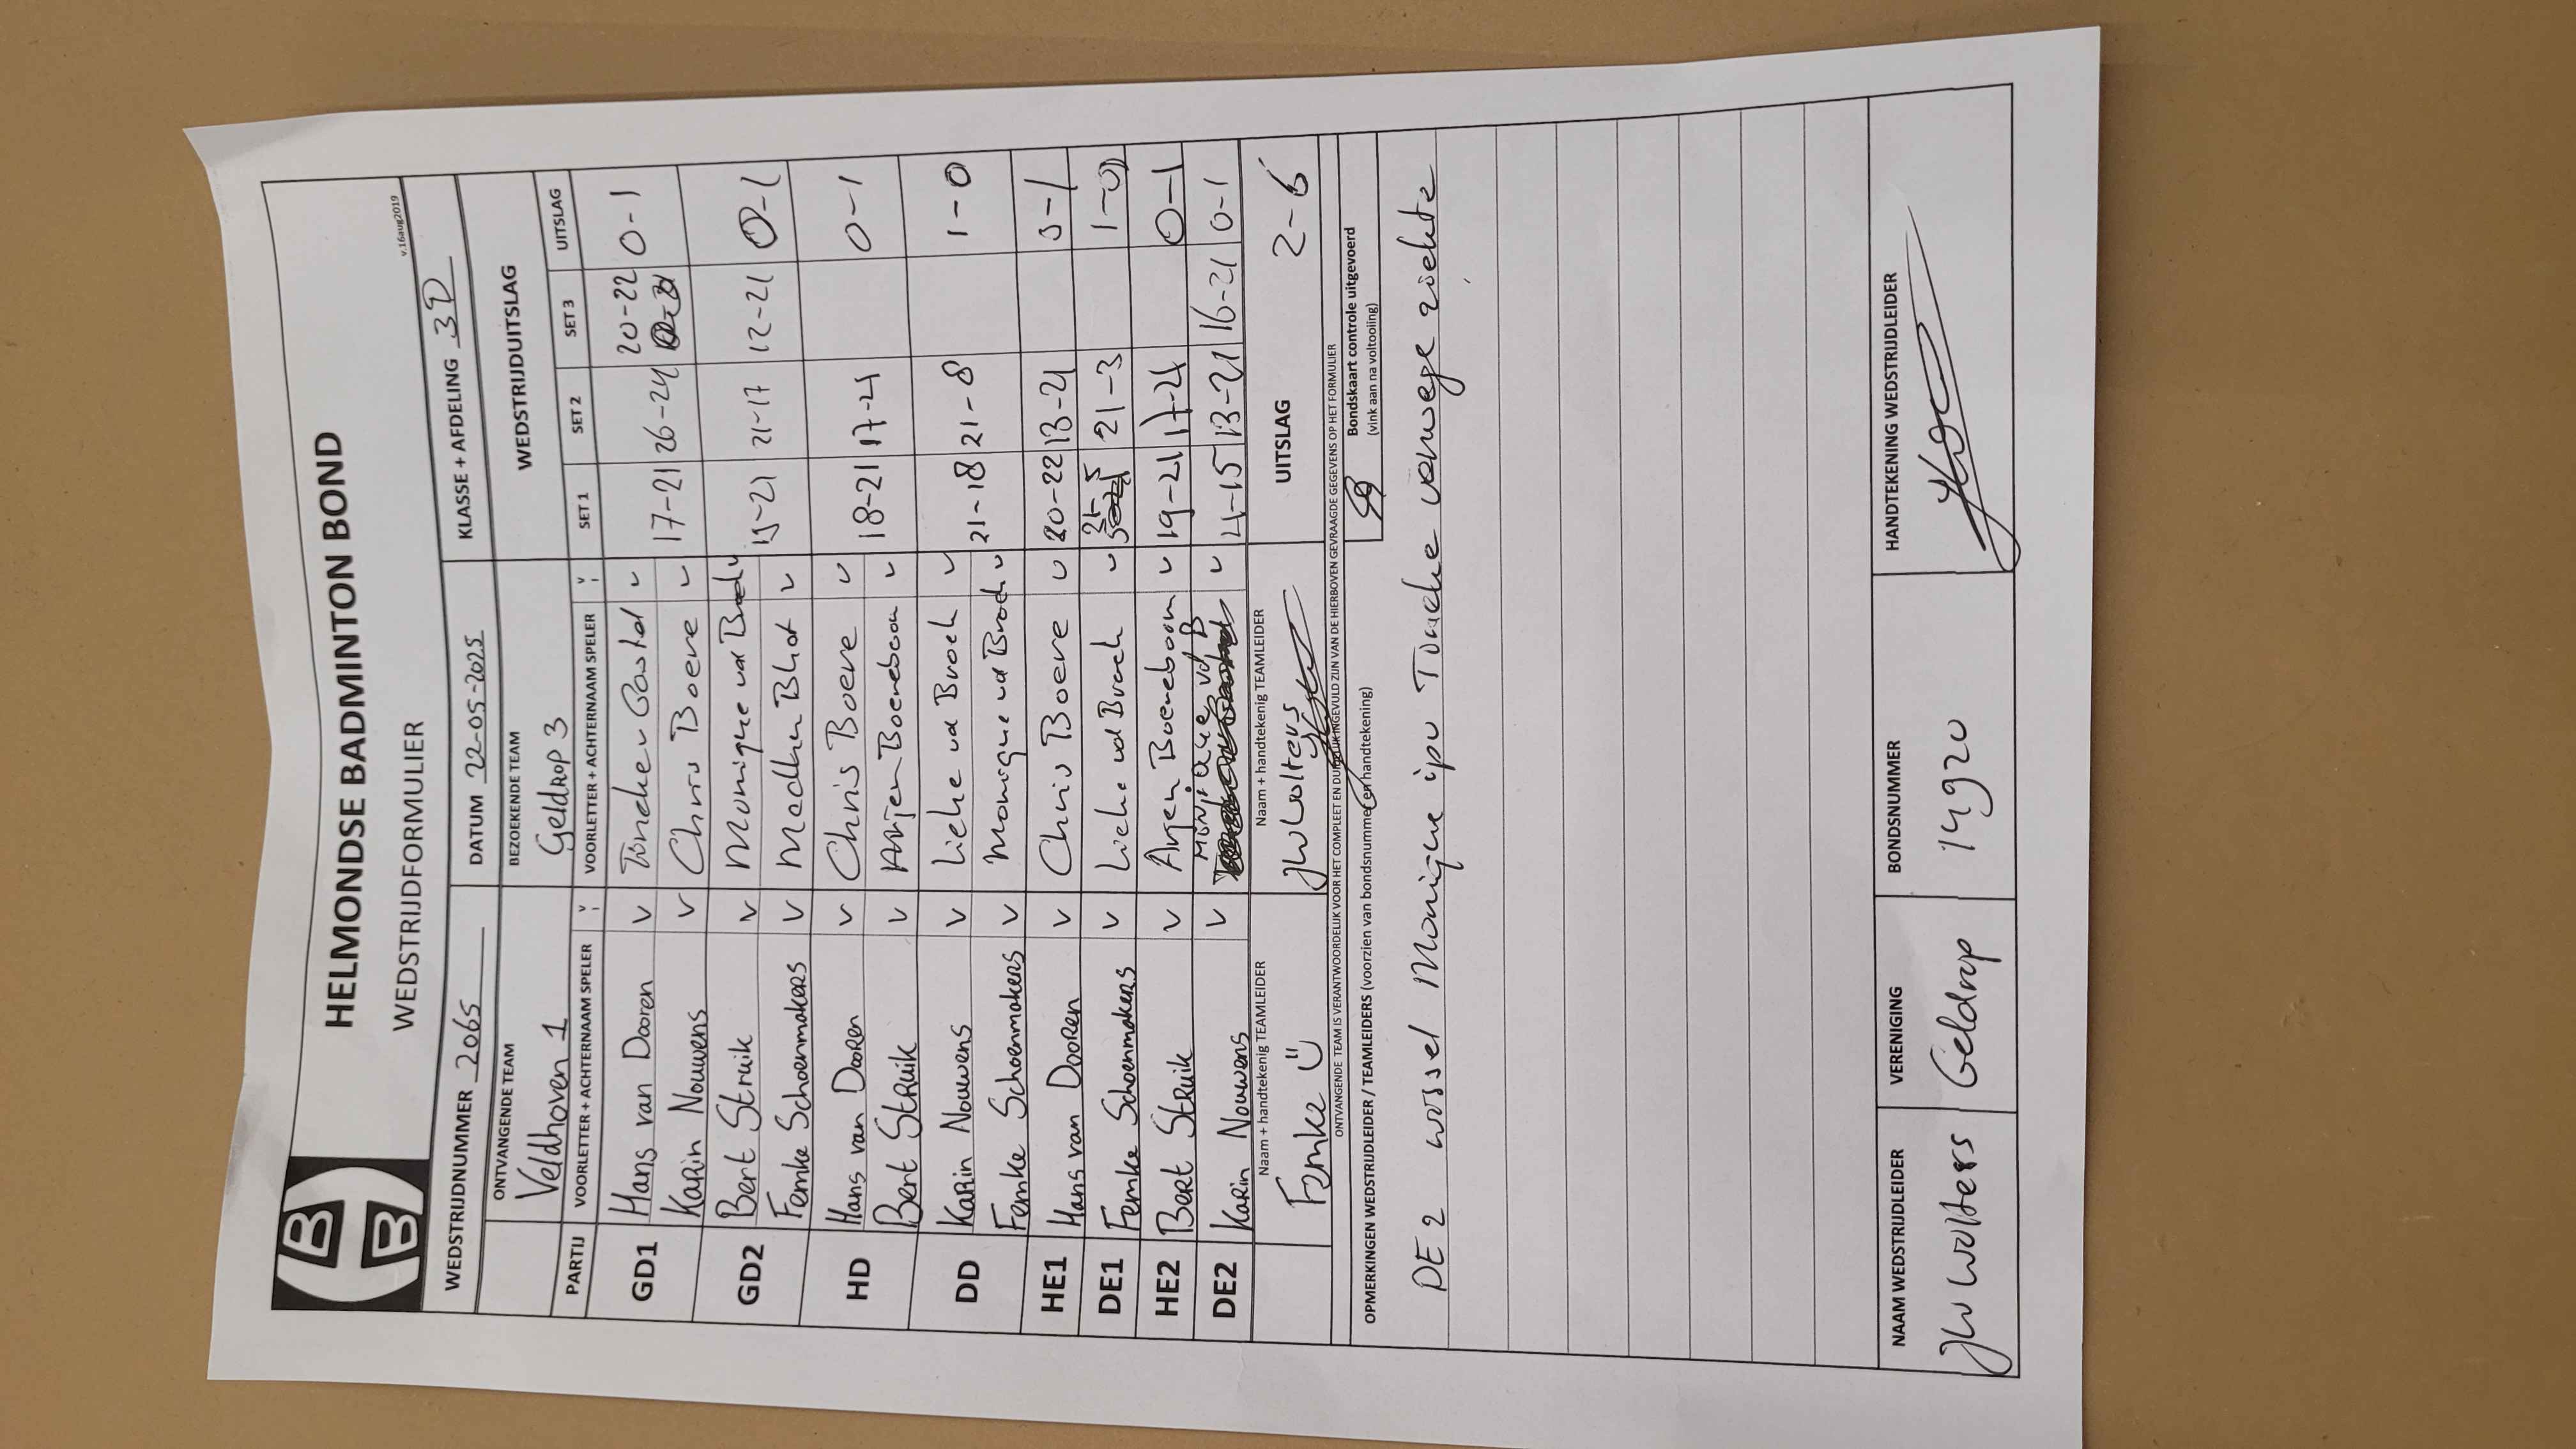 HELMONDSE BADMINTON BOND
WEDSTRIJDFORMULIER
v.16aug2019
WEDSTRIJDNUMMER 2065 DATUM 22-05-2025 KLASSE + AFDELING 3D
ONTVANGENDE TEAM BEZOEKENDE TEAM WEDSTRIJDUITSLAG
Veldhoven 1 Geldrop 3
PARTIJ VOORLETTER + ACHTERNAAM SPELER V VOORLETTER + ACHTERNAAM SPELER V SET 1 SET 2 SET 3 UITSLAG
GD1 Hans van Dooren V Tineke v Gastel V 17-21 26-24 20-22 0-1
Karin Nouwens V Chris Boere V
GD2 Bert Struik V Monique vd Broek V 15-21 21-17 12-21 0-1
Femke Schoenmakers V V
HD Hans van Dooren V Chris Boere V 18-21 17-21 0-1
Bert Struik V Arjen Boereboom V
DD Karin Nouwens V Lieke vd Broek V 21-18 21-8 1-0
Femke Schoenmakers V Monique vd Broek V
HE1 Hans van Dooren V Chris Boere V 20-22 13-21 0-1
DE1 Femke Schoenmakers V Lieke vd Broek V 21-5 21-3 1-0
HE2 Bert Struik V Arjen Boereboom V 19-21 17-21 0-1
DE2 Karin Nouwens V Monique vd B V 21-15 13-21 16-21 0-1
Naam + handtekenig TEAMLEIDER Naam + handtekenig TEAMLEIDER UITSLAG 2-6
Femke JW Wolters
ONTVANGENDE TEAM IS VERANTWOORDELIJK VOOR HET COMPLEET EN DUIDELIJK INGEVULD ZIJN VAN DE HIERBOVEN GEVRAAGDE GEGEVENS OP HET FORMULIER
OPMERKINGEN WEDSTRIJDLEIDER / TEAMLEIDERS (voorzien van bondsnummer en handtekening)
Bondskaart controle uitgevoerd
(vink aan na voltooiing)
DE 2 wissel Monique ipv Tineke vanwege ziekte
NAAM WEDSTRIJDLEIDER VERENIGING BONDSNUMMER HANDTEKENING WEDSTRIJDLEIDER
JW Wolters Geldrop 14920